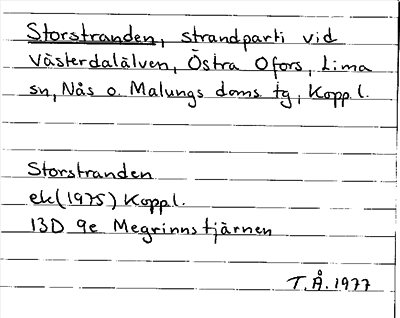 Storstranden, strandparti vid
Västerdalälven, Östra Ofors, Lima
sn, Nås o. Malungs doms. tg, Koppl.
Storstranden
ek (1975) Koppl.
13D 9e Megrinnstjärnen
T.Å. 1977